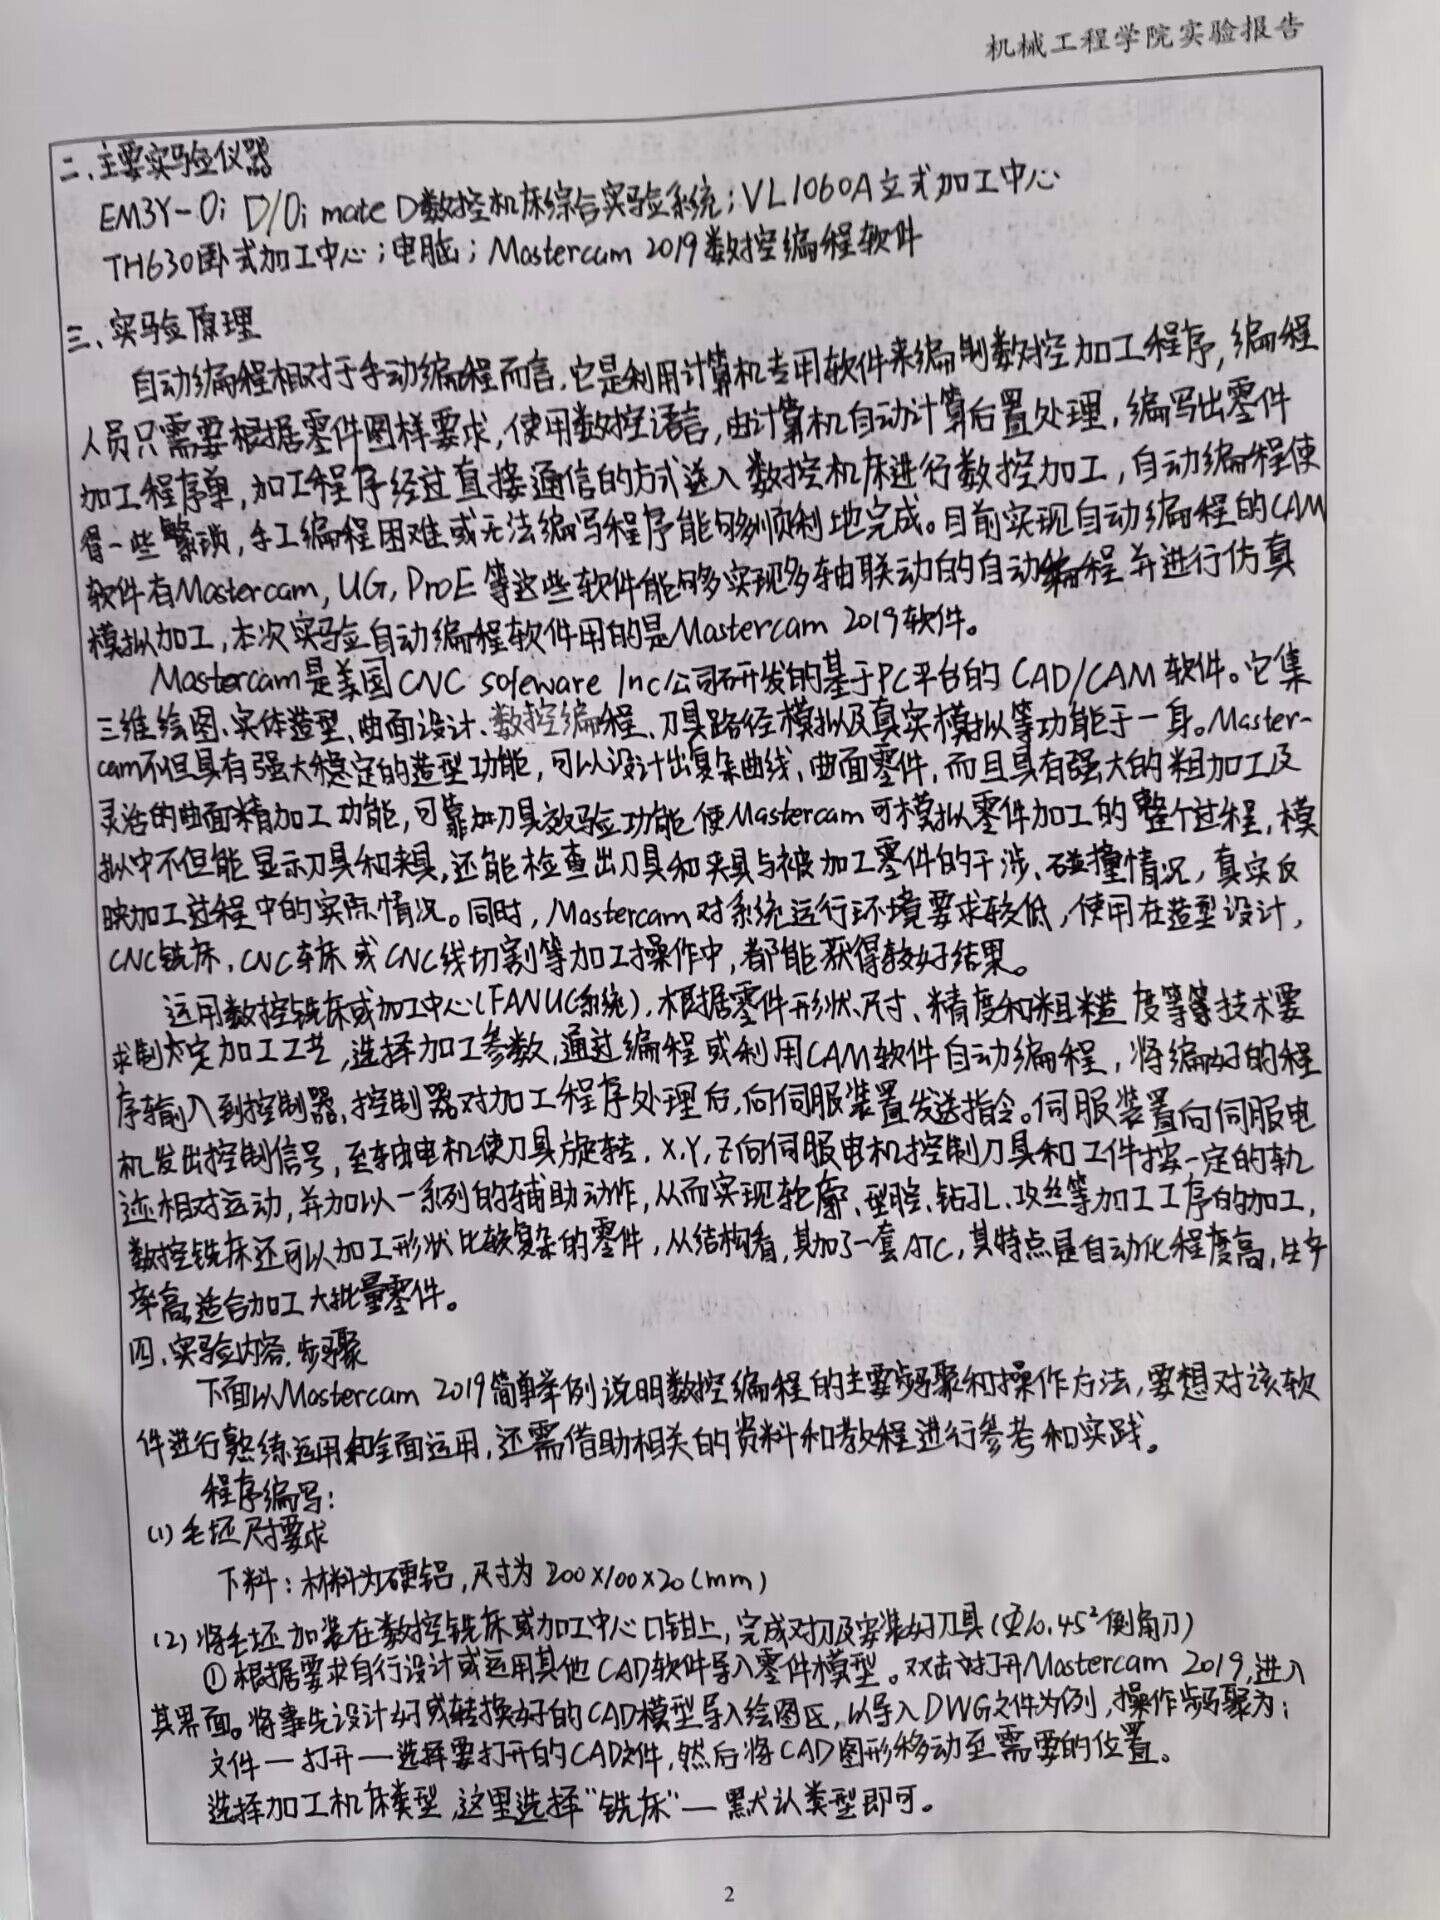 机械工程学院实验报告
二、主要实验仪器
EM3Y-0i D/0i mate D数控机床综合实验系统；VL1060A立式加工中心
TH630卧式加工中心；电脑；Mastercam 2019数控编程软件
三、实验原理
自动编程相对于手动编程而言，它是利用计算机专用软件来编制数控加工程序，编程
人员只需要根据零件图样要求，使用数控语言，由计算机自动计算后置处理，编写出零件
加工程序单，加工程序经过直接通信的方式送入数控机床进行数控加工，自动编程使
得一些繁琐，手工编程困难或无法编写程序能够顺利地完成。目前实现自动编程的CAM
软件有Mastercam, UG, ProE等这些软件能够多实现多轴联动的自动编程并进行仿真
模拟加工，本次实验自动编程软件用的是Mastercam 2019软件。
Mastercam是美国CNC soleware Inc公司研发的基于PC平台的CAD/CAM软件。它集
三维绘图、实体造型、曲面设计、数控编程、刀具路径模拟及真实模拟等功能于一身。Master-
cam不但具有强大稳定的造型功能，可以设计出复杂曲线、曲面零件，而且具有强大的粗加工及
灵活的曲面精加工功能，可靠加刀具效验功能使Mastercam可模拟零件加工的整个过程，模
拟中不但能显示刀具和夹具，还能检查出刀具和夹具与被加工零件的干涉、碰撞情况，真实反
映加工过程中的实际情况。同时，Mastercam对系统运行环境要求较低，使用在造型设计，
CNC铣床、CNC车床或CNC线切割等加工操作中，都能获得较好结果。
运用数控铣床或加工中心(FANUC系统)，根据零件形状、尺寸、精度和粗糙度等等技术要
求制定加工工艺，选择加工参数，通过编程或利用CAM软件自动编程，将编好的程
序输入到控制器，控制器对加工程序处理后，向伺服装置发送指令。伺服装置向伺服电
机发出控制信号，至轴电机使刀具旋转，X,Y,Z向伺服电机控制刀具和工件按一定的轨
迹相对运动，并加以一系列的辅助动作，从而实现轮廓、型腔、钻孔、攻丝等加工工序的加工，
数控铣床还可以加工形状比较复杂的零件，从结构看，其加了一套ATC，其特点是自动化程度高，生产
率高，适合加工大批量零件。
四、实验内容、步骤
下面以Mastercam 2019简单举例说明数控编程的主要步骤和操作方法，要想对该软
件进行熟练运用和全面运用，还需借助相关的资料和教程进行参考和实践。
程序编写：
(1)毛坯尺寸要求
下料：材料为硬铝，尺寸为200×100×20(mm)
(2)将毛坯加装在数控铣床或加工中心口钳上，完成对刀及安装好刀具(Φ10.45°倒角刀)
①根据要求自行设计或运用其他CAD软件导入零件模型。双击打开Mastercam 2019，进入
其界面。将事先设计好或转换好的CAD模型导入绘图区，以导入DWG文件为例，操作步骤为：
文件—打开—选择要打开的CAD文件，然后将CAD图形移动至需要的位置。
选择加工机床类型，这里选择"铣床"—默认类型即可。
2